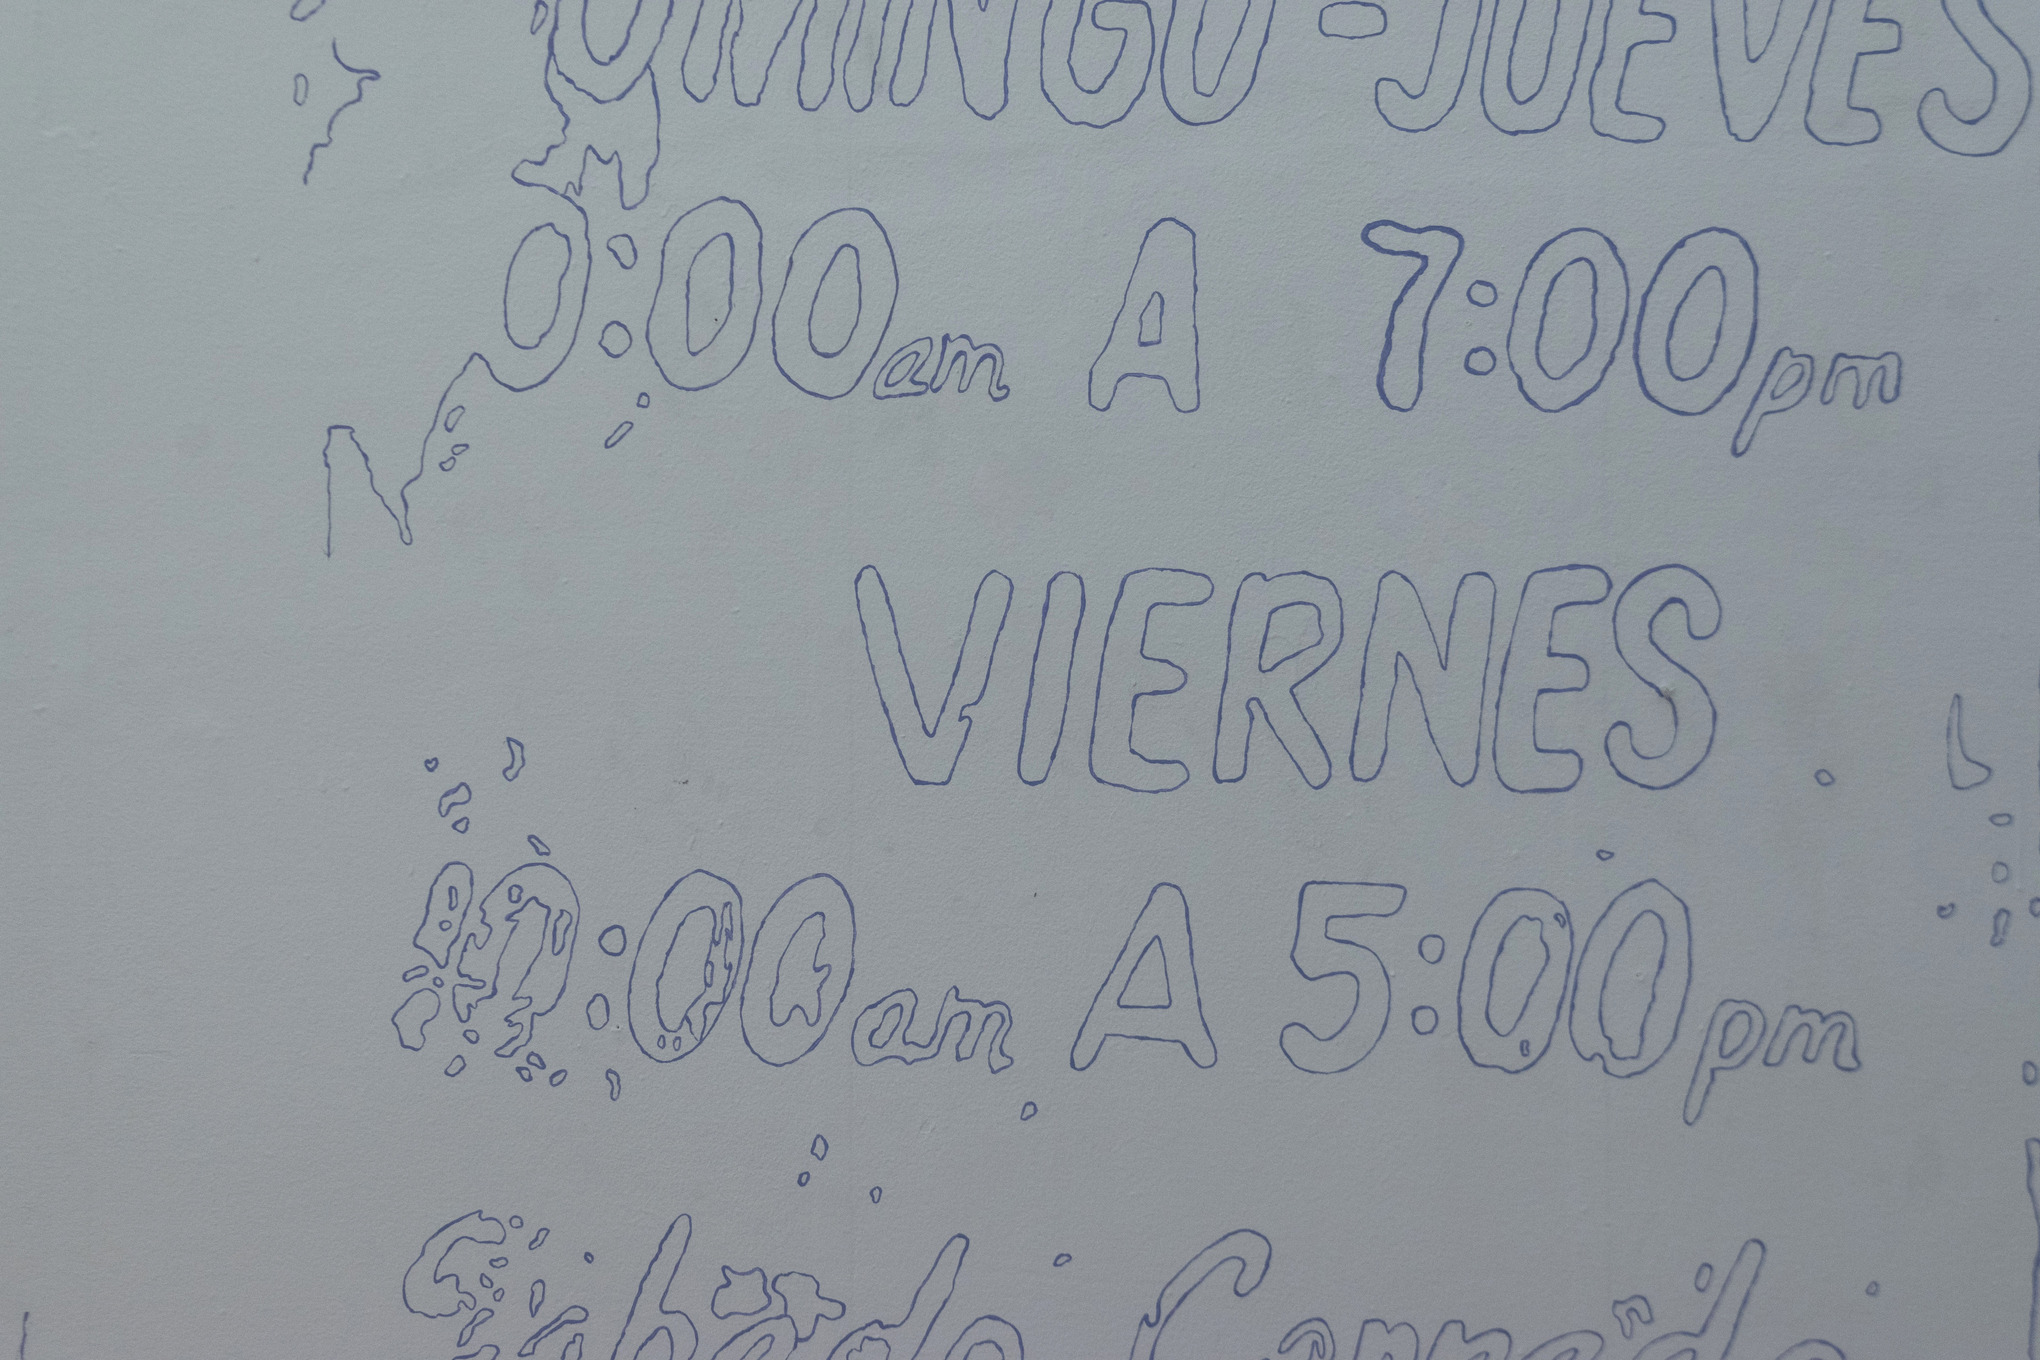 DOMINGO - JUEVES
0:00am A 7:00pm
VIERNES
10:00am A 5:00pm
Sábado Cerrado